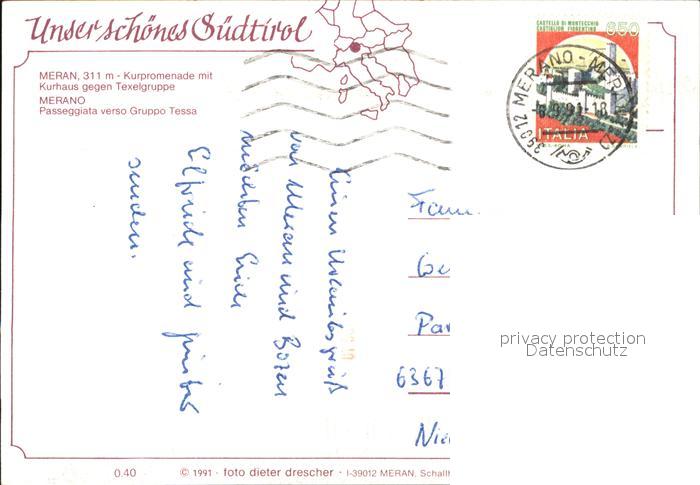 Unser schönes Südtirol
MERAN, 311 m - Kurpromenade mit
Kurhaus gegen Texelgruppe
MERANO
Passeggiata verso Gruppo Tessa
CASTELLO DI MONTECCHIO
CASTIGLION FIORENTINO
650
ITALIA
39012 MERANO - MER
Einen Urlaubsgruß
von Meran und Bozen
möchten Euch
Elfriede und Günter
senden.
Fam
Ge
Par
6367
Nie
privacy protection
Datenschutz
0.40
© 1991 · foto dieter drescher · I-39012 MERAN, Schallh